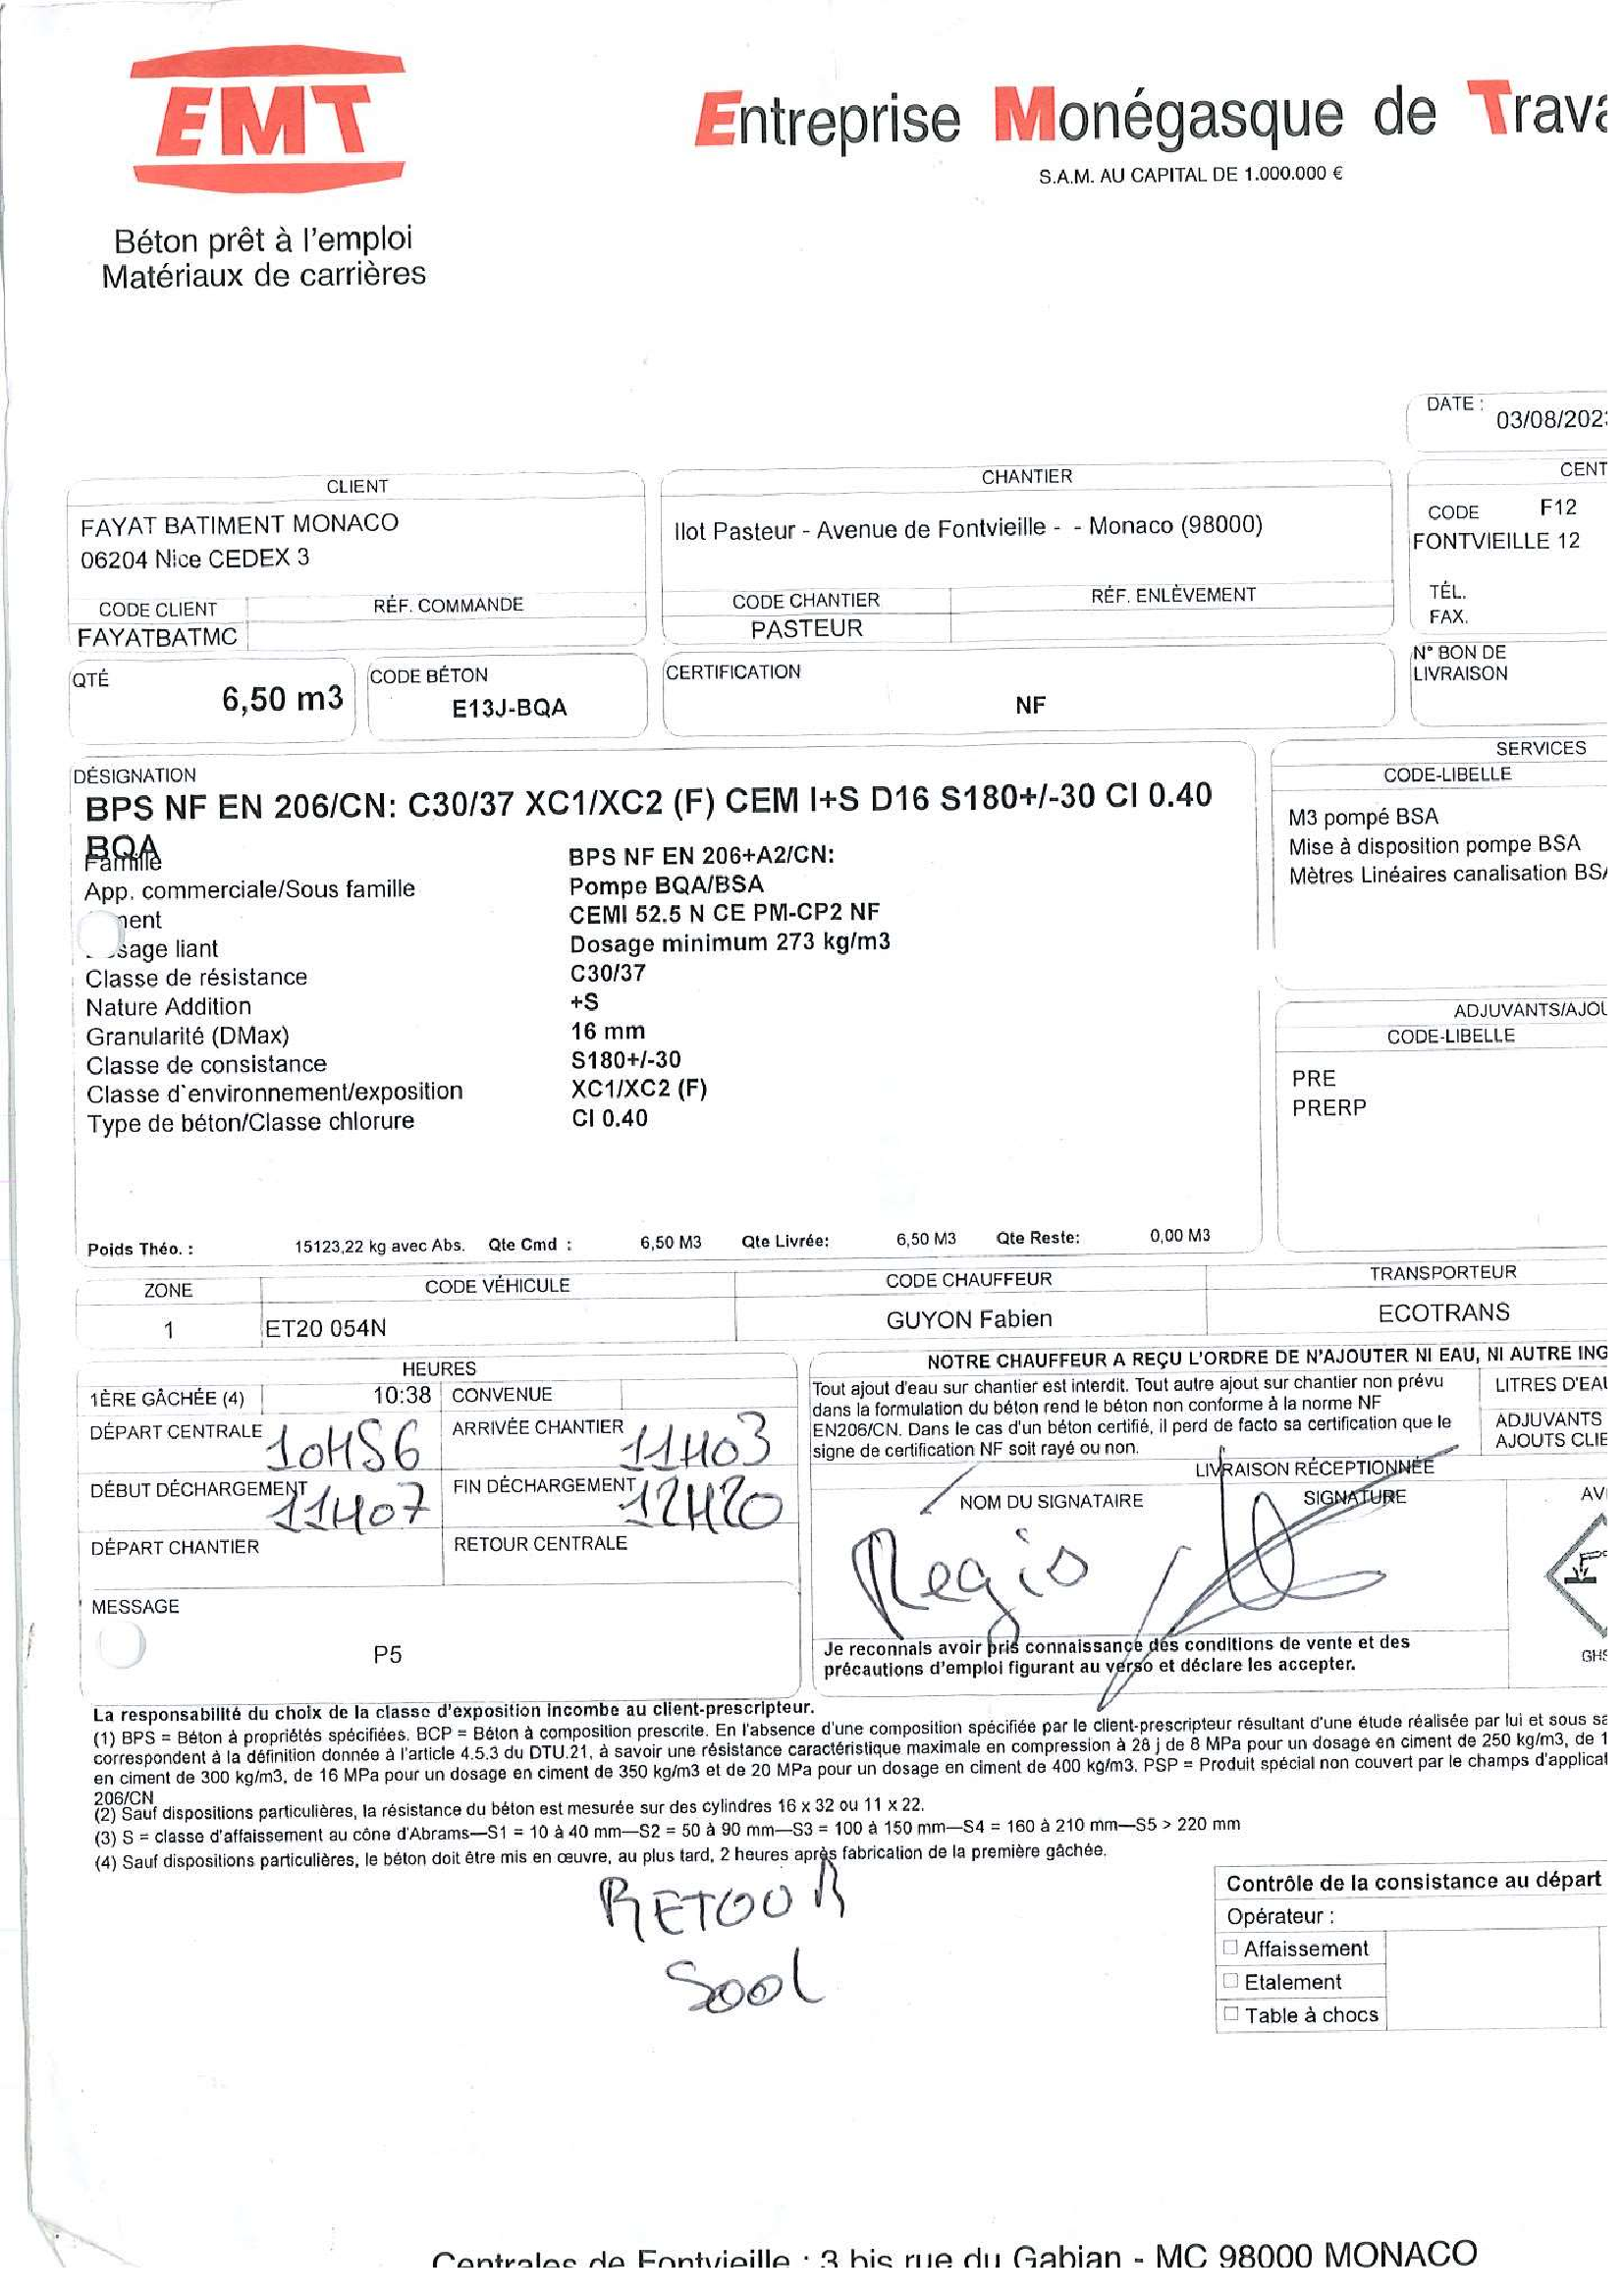 EMT
Entreprise Monégasque de Trava
S.A.M. AU CAPITAL DE 1.000.000 €
Béton prêt à l'emploi
Matériaux de carrières
DATE : 03/08/202
CLIENT
FAYAT BATIMENT MONACO
06204 Nice CEDEX 3
CODE CLIENT RÉF. COMMANDE
FAYATBATMC
CHANTIER
Ilot Pasteur - Avenue de Fontvieille - - Monaco (98000)
CODE CHANTIER RÉF. ENLÈVEMENT
PASTEUR
CENT
CODE F12
FONTVIEILLE 12
TÉL.
FAX.
QTÉ 6,50 m3
CODE BÉTON
E13J-BQA
CERTIFICATION
NF
N° BON DE
LIVRAISON
DÉSIGNATION
BPS NF EN 206/CN: C30/37 XC1/XC2 (F) CEM I+S D16 S180+/-30 Cl 0.40
BQA
Famille BPS NF EN 206+A2/CN:
App. commerciale/Sous famille Pompe BQA/BSA
ment CEMI 52.5 N CE PM-CP2 NF
sage liant Dosage minimum 273 kg/m3
Classe de résistance C30/37
Nature Addition +S
Granularité (DMax) 16 mm
Classe de consistance S180+/-30
Classe d'environnement/exposition XC1/XC2 (F)
Type de béton/Classe chlorure Cl 0.40
Poids Théo. : 15123,22 kg avec Abs. Qte Cmd : 6,50 M3 Qte Livrée: 6,50 M3 Qte Reste: 0,00 M3
SERVICES
CODE-LIBELLE
M3 pompé BSA
Mise à disposition pompe BSA
Mètres Linéaires canalisation BSA
ADJUVANTS/AJOU
CODE-LIBELLE
PRE
PRERP
ZONE CODE VÉHICULE CODE CHAUFFEUR TRANSPORTEUR
1 ET20 054N GUYON Fabien ECOTRANS
HEURES
1ÈRE GÂCHÉE (4) 10:38 CONVENUE
DÉPART CENTRALE 10H56 ARRIVÉE CHANTIER 11H03
DÉBUT DÉCHARGEMENT 11H07 FIN DÉCHARGEMENT 12H20
DÉPART CHANTIER RETOUR CENTRALE
MESSAGE
P5
NOTRE CHAUFFEUR A REÇU L'ORDRE DE N'AJOUTER NI EAU, NI AUTRE ING
Tout ajout d'eau sur chantier est interdit. Tout autre ajout sur chantier non prévu
dans la formulation du béton rend le béton non conforme à la norme NF
EN206/CN. Dans le cas d'un béton certifié, il perd de facto sa certification que le
signe de certification NF soit rayé ou non.
LITRES D'EAU
ADJUVANTS
AJOUTS CLIE
LIVRAISON RÉCEPTIONNÉE
NOM DU SIGNATAIRE SIGNATURE
Regis
Je reconnais avoir pris connaissance des conditions de vente et des
précautions d'emploi figurant au verso et déclare les accepter.
AV
GHS
La responsabilité du choix de la classe d'exposition incombe au client-prescripteur.
(1) BPS = Béton à propriétés spécifiées. BCP = Béton à composition prescrite. En l'absence d'une composition spécifiée par le client-prescripteur résultant d'une étude réalisée par lui et sous sa
correspondent à la définition donnée à l'article 4.5.3 du DTU.21, à savoir une résistance caractéristique maximale en compression à 28 j de 8 MPa pour un dosage en ciment de 250 kg/m3, de 1
en ciment de 300 kg/m3, de 16 MPa pour un dosage en ciment de 350 kg/m3 et de 20 MPa pour un dosage en ciment de 400 kg/m3. PSP = Produit spécial non couvert par le champs d'applicat
206/CN
(2) Sauf dispositions particulières, la résistance du béton est mesurée sur des cylindres 16 x 32 ou 11 x 22.
(3) S = classe d'affaissement au cône d'Abrams—S1 = 10 à 40 mm—S2 = 50 à 90 mm—S3 = 100 à 150 mm—S4 = 160 à 210 mm—S5 > 220 mm
(4) Sauf dispositions particulières, le béton doit être mis en œuvre, au plus tard, 2 heures après fabrication de la première gâchée.
RETOUR
500l
Contrôle de la consistance au départ
Opérateur :
Affaissement
Etalement
Table à chocs
Centrales de Fontvieille : 3 bis rue du Gabian - MC 98000 MONACO